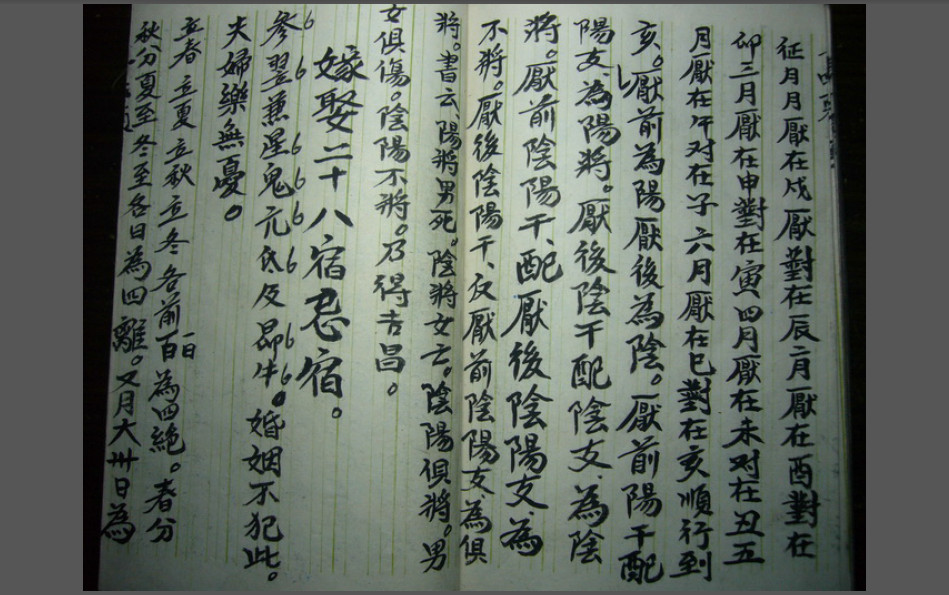 征月月厭在戍厭對在辰二月厭在酉對在
卯三月厭在申對在寅四月厭在未对在丑五
月厭在午对在子六月厭在巳對在亥順行到
亥。厭前為陽厭後為陰。厭前陽干配
陽支、為陽將。厭後陰干配陰支、為陰
將。厭前陰陽干、配厭後陰陽支、為
不將。厭後陰陽干、仮厭前陰陽支、為俱
將。書云、陽將男死。陰將女亡。陰陽俱將。男
女俱傷。陰陽不將。乃得吉昌。
嫁娶二十八宿忌宿。
參翌兼星鬼亢氐及昴牛。婚姻不犯此。
夫婦樂無憂。
立春立夏立秋立冬各前一日為四絶。春分
秋分夏至冬至各日為四離。又月大卅日為